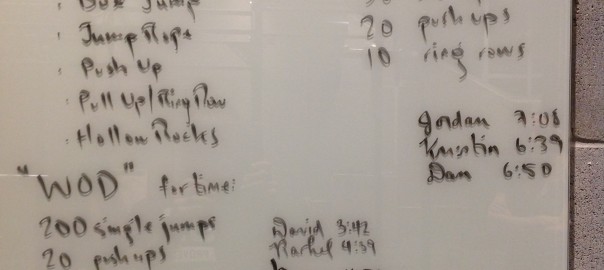 Box Jump
Jump Rope
Push Up
Pull Up/Ring Row
Hollow Rocks
"WOD" for time:
200 single jumps
20 push ups
David 3:42
Rachel 4:39
20 push ups
10 ring rows
Jordan 7:08
Kristin 6:39
Dan 6:50